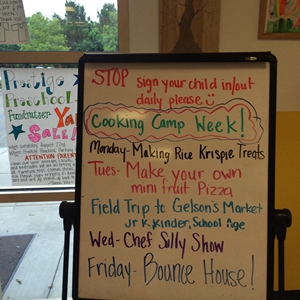 STOP sign your child in/out
daily please
Cooking Camp Week!
Monday-Making Rice Krispie Treats
Tues- Make your own
mini fruit Pizza
Field Trip to Gelson's Market
Jr K, Kinder, School Age
Wed- Chef Silly Show
Friday- Bounce House!
Prestige
Preschool
Fundraiser Ya
Sale!
ATTENTION PARENTS